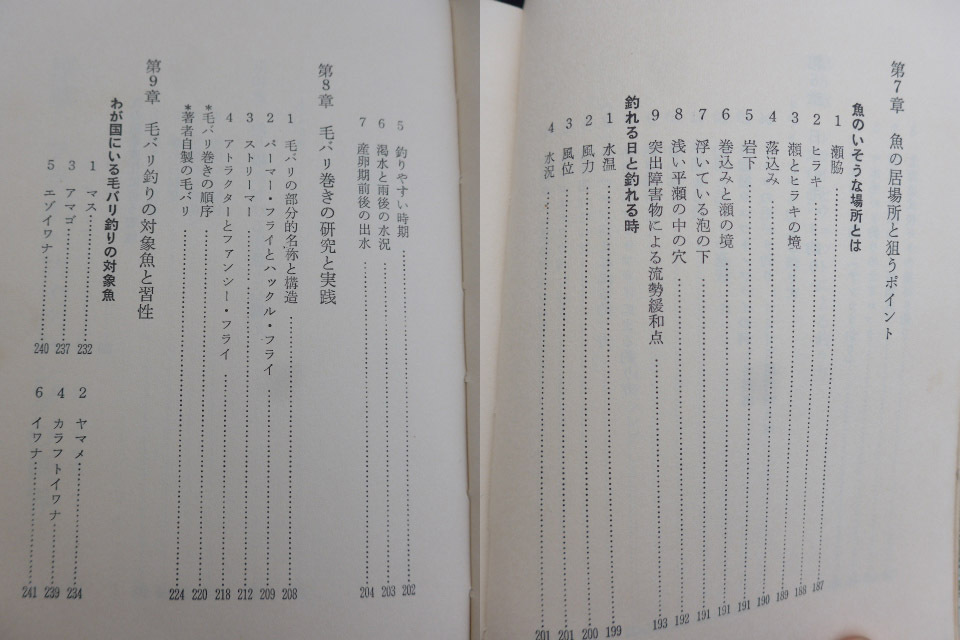 第7章 魚の居場所と狙うポイント
魚のいそうな場所とは
1 瀬脇 187
2 ヒラキ 188
3 瀬とヒラキの境 189
4 落込み 190
5 岩下 191
6 巻込みと瀬の境 191
7 浮いている泡の下 191
8 浅い平瀬の中の穴 192
9 突出障害物による流勢緩和点 193
釣れる日と釣れる時
1 水温 199
2 風力 200
3 風位 201
4 水況 201
5 釣りやすい時期 202
6 渇水と雨後の水況 203
7 産卵期前後の出水 204
第8章 毛バリ巻きの研究と実践
1 毛バリの部分的名称と構造 208
2 パーマー・フライとハックル・フライ 209
3 ストリーマー 212
4 アトラクターとファンシー・フライ 218
*毛バリ巻きの順序 220
*著者自製の毛バリ 224
第9章 毛バリ釣りの対象魚と習性
わが国にいる毛バリ釣りの対象魚
1 マス 232
2 ヤマメ 234
3 アマゴ 237
4 カラフトイワナ 239
5 エゾイワナ 240
6 イワナ 241